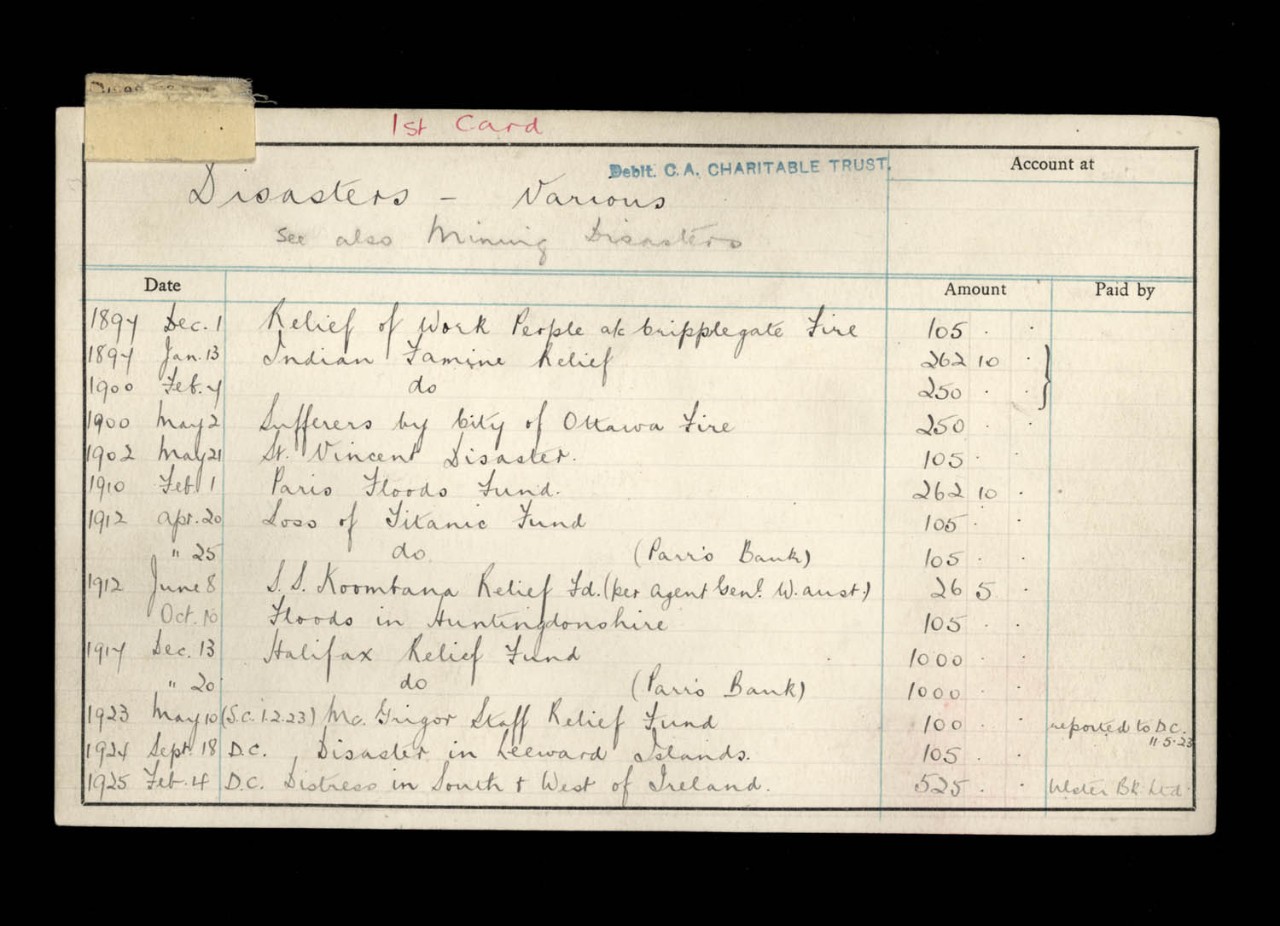 1st Card
Debit. C.A. CHARITABLE TRUST.
Account at
Disasters - Various
See also Mining Disasters
Date Amount Paid by
1897 Dec. 1 Relief of Work People at Cripplegate Fire 105 . .
1897 Jan. 13 Indian Famine Relief 262 10 .
1900 Feb. 7 do 250 . .
1900 May 2 Sufferers by City of Ottawa Fire 250 . .
1902 May 21 St. Vincent Disaster. 105 . .
1910 Feb. 1 Paris Floods Fund. 262 10 .
1912 Apr. 20 Loss of Titanic Fund 105 . .
" 25 do. (Parr's Bank) 105 . .
1912 June 8 S.S. Koombana Relief Fd. (per Agent Genl. W. Aust.) 26 5 .
Oct. 10 Floods in Huntingdonshire 105 . .
1917 Dec. 13 Halifax Relief Fund 1000 . .
" 20 do (Parr's Bank) 1000 . .
1923 May 10 (S.C. 1.2.23) Mc. Grigor Staff Relief Fund 100 . . reported to D.C.
11.5.23
1924 Sept. 18 D.C. Disaster in Leeward Islands. 105 . .
1925 Feb. 4 D.C. Distress in South & West of Ireland. 525 . . Ulster Bk. Ltd